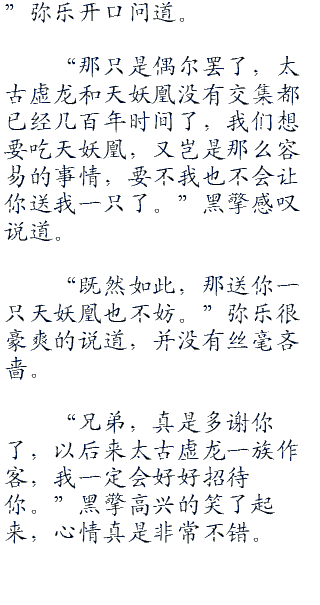 ”弥乐开口问道。
“那只是偶尔罢了，太
古虚龙和天妖凰没有交集都
已经几百年时间了，我们想
要吃天妖凰，又岂是那么容
易的事情，要不我也不会让
你送我一只了。”黑擎感叹
说道。
“既然如此，那送你一
只天妖凰也不妨。”弥乐很
豪爽的说道，并没有丝毫吝
啬。
“兄弟，真是多谢你
了，以后来太古虚龙一族作
客，我一定会好好招待
你。”黑擎高兴的笑了起
来，心情真是非常不错。